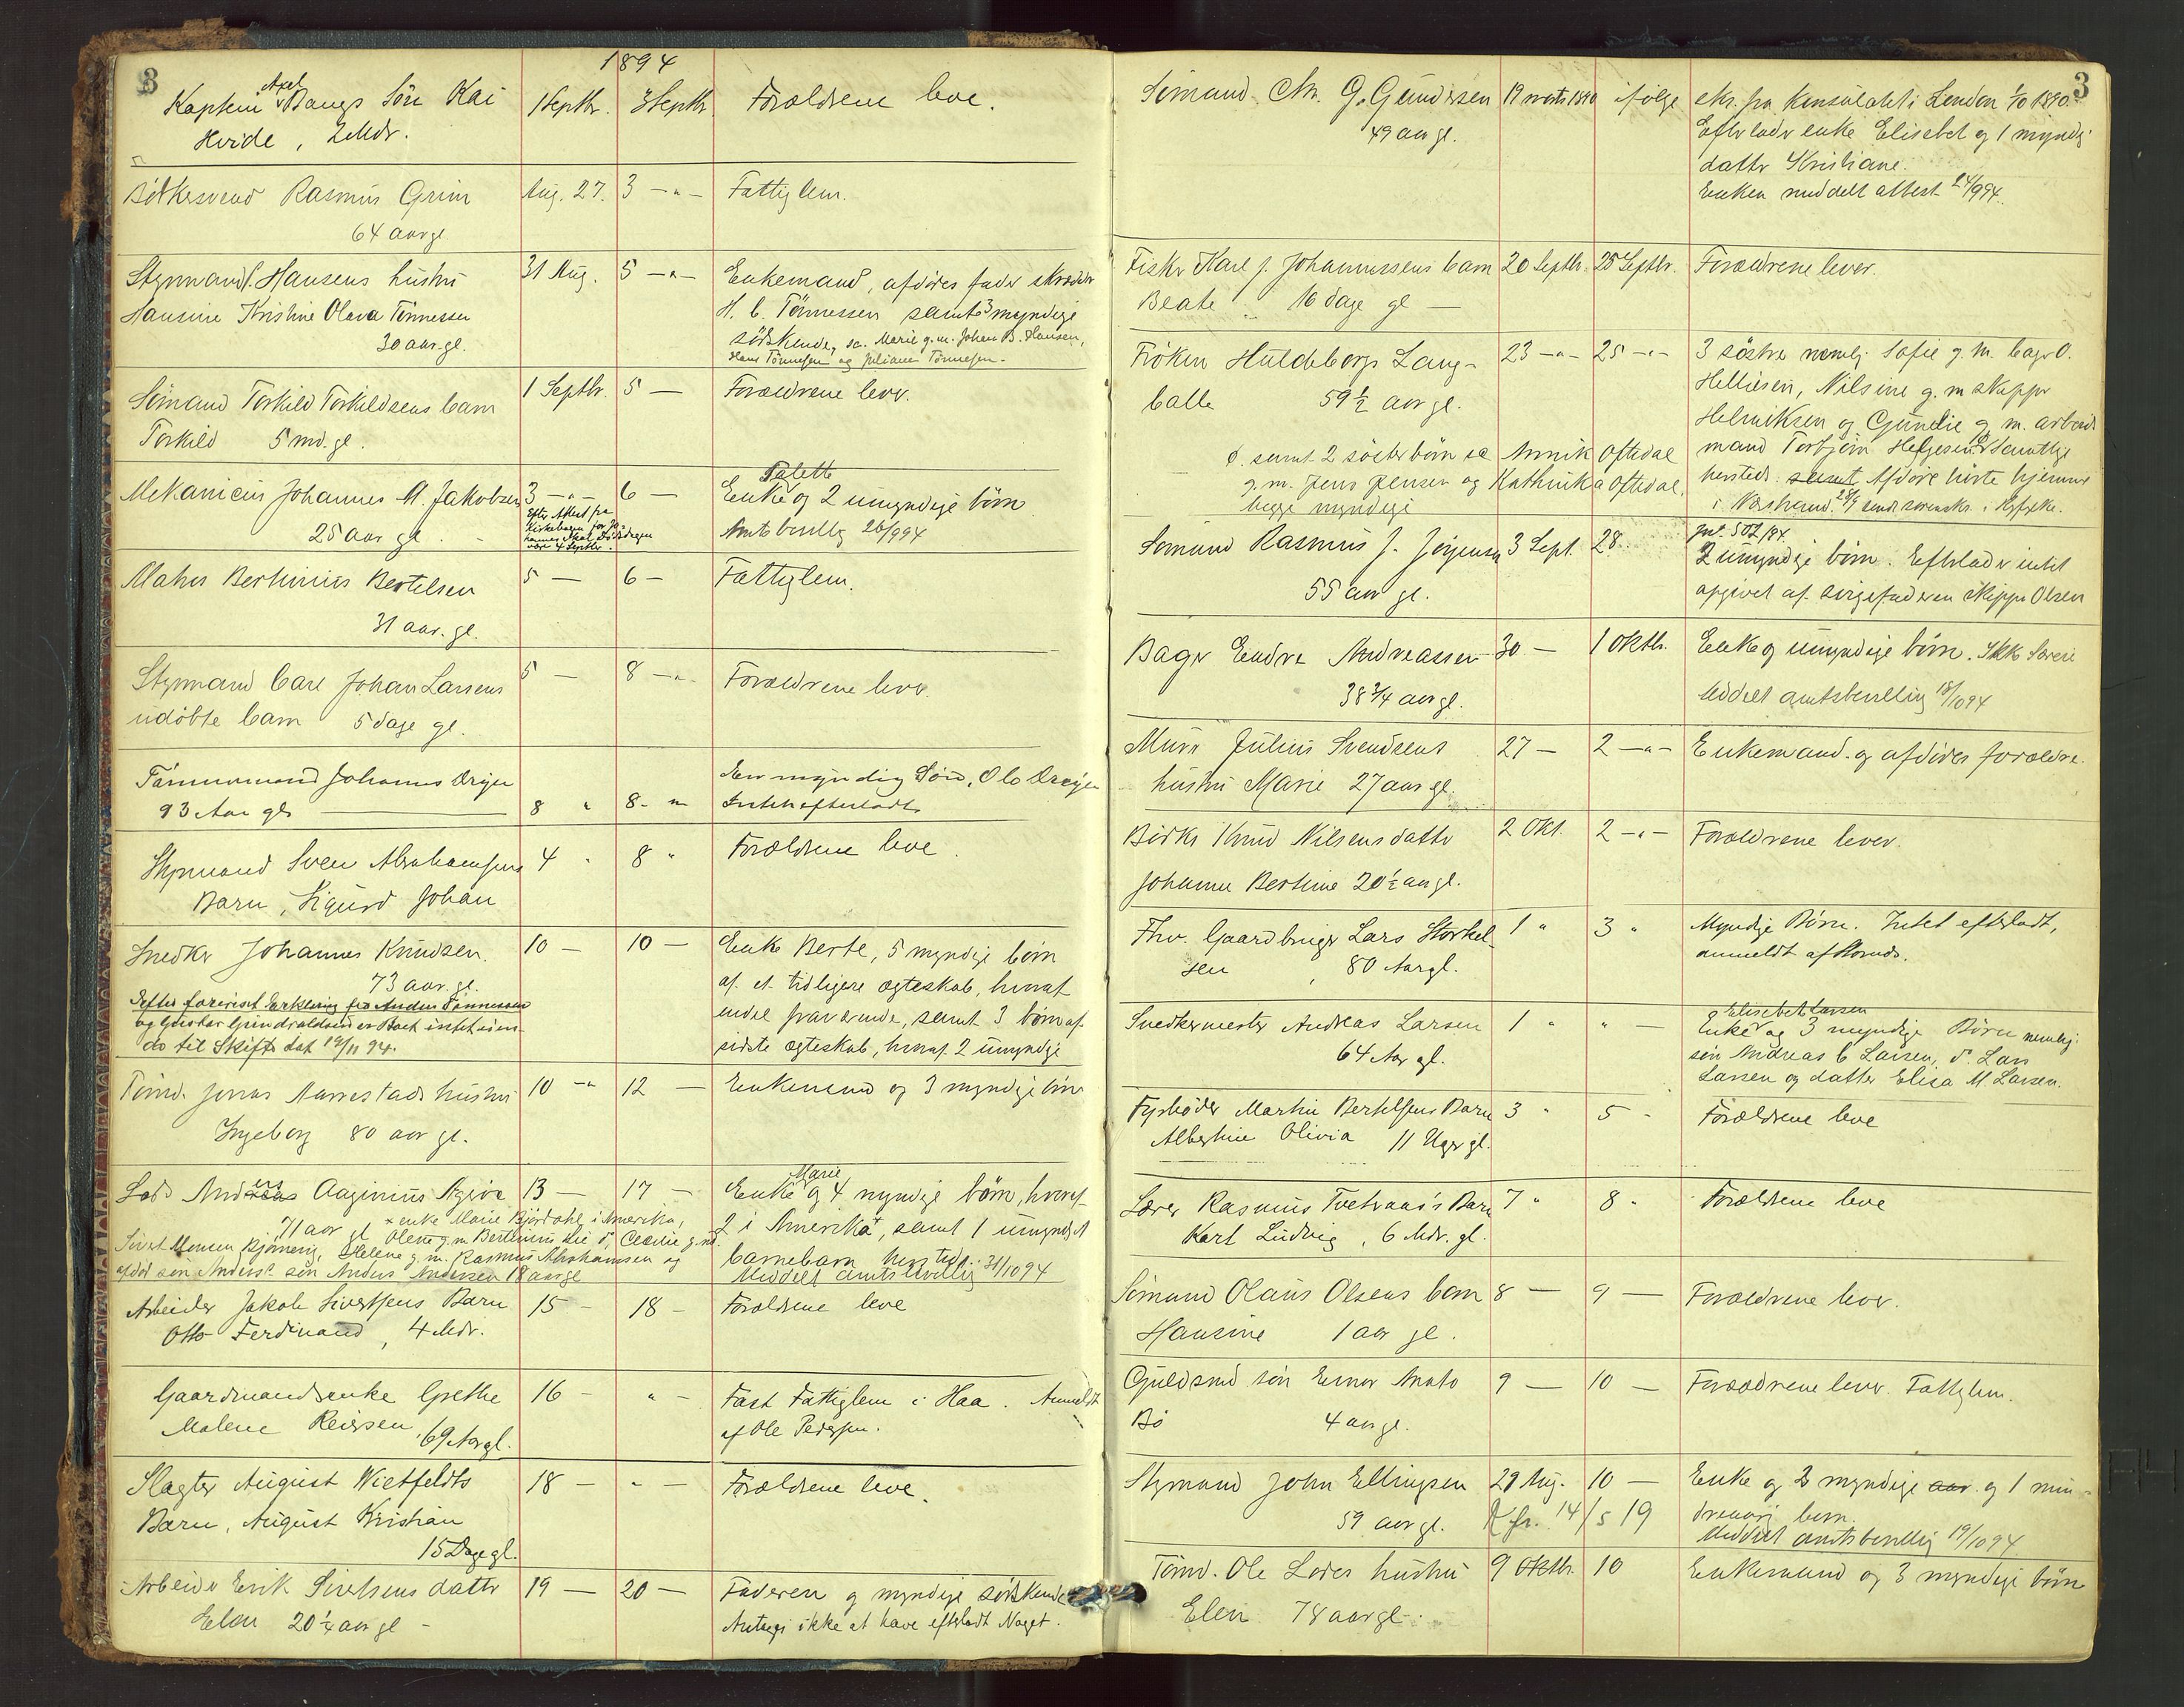 1894
3
Kaptein Axel Bangs Søn Kai 1 Septbr. 3 Septbr Forældrene leve.
Hvide, 2 Mdr.
Bødkersvend Rasmus Grim Aug. 27. 3 — " — Fattiglem.
64 aar gl
Styrmand Hansens hustru 31 Aug. 5 — " — Enkemand, afdødes fader skrædder
Hansine Kristine Olava Tønnessen H. C. Tønnessen samt 3 myndige
30 aar gl. södskende, sa. Marie g. m. Johan B. Hansen,
Hans Tönnesen og Juliane Tönnesen.
Sömand Torkild Torkildsens barn 1 Septbr. 5 — Forældrene lever.
Torkild 5 md. gl.
Mekanicus Johannes M. Jakobsen 3 — " — 6 — Enke Talette og 2 umyndige börn
25 aar gl. Efter Attest fra Amtsbevillg 26/9 94
Kirkebogen for
Dödsdagen
være 4 Septbr.
Maler Bertinius Bertelsen 5 — 6 — Fattiglem.
31 aar. gl.
Styrmand Carl Johan Larsens 5 — 8 — " Forældrene lever.
udøbte barn 5 dage gl.
Tømmermand Johannes Dreyer En myndig Søn, Ole Dreyer
93 Aar gl 8 " 8 - " Intet efterladt
Styrmand Sven Abrahamsens 4 " 8 " Forældrene leve.
Barn, Sigurd Johan
Snedker Johannes Knudsen. 10 — 10 — Enke Berte, 5 myndige børn
73 aar. gl. af et tidligere ægteskab, hvoraf
Efter foreviist Erklæring fra Anders Tønnessen endel fraværende, samt 3 børn af
og Gustav Grindraldsen er Boet intet eien- sidste ægteskab, hvoraf 2 umyndige
de til Skifte dat 19/11 94.
Tømd. Jonas Narrestads hustru 10 — " 12 — Enkemand og 3 myndige børn
Ingeborg 80 aar gl.
Lods Andreas Aaginius Ageroe 13 — 17 — Enke Marie og 4 myndige børn, hvoraf
71 aar gl × enke Marie Bjørdahl i Amerika, 2 i Amerika, samt 1 umyndigt
Sivert Monsen Bjørnevig, Helene g. m. Rasmus Abrahamsen og barnebarn hersteds.
afdød søn Anders's søn Anders Andersen 18 aar gl Meddelt amtsbevillig 31/10 94
Arbeider Jakob Sivertsens Barn 15 — 18 — Forældrene leve
Otto Ferdinand, 4 Mdr.
Gaardmandsenke Grethe 16 — " — Fast Fattiglem i Haa. Anmeldt
Malene Reiersen, 69 Aar gl. af Ole Pedersen.
Slagter August Wietfeldts 18 — " — Forældrene leve.
Barn, August Kristian
15 Dage gl.
Arbeider Erik Sivertsens datter 19 — 20 — Faderen og myndige södskende
Elen 20 1/4 aar gl — Antages ikke at have efterladt Noget.
3
Sømand Chr. G. Gundersen 19 marts 1890 ifølge skr. fra Konsulatet i London 1/10 1890.
49 aar gl. Efterlader enke Elisebet og 1 myndig
datter Kristiane.
Enken meddelt attest 24/9 94.
Fisker Karl J. Johannessens barn 20 Septbr. 25 Septbr. Forældrene lever.
Beate 16 dage gl —
Frøken Huldeborg Lang- 23 — " — 25 — " — 3 söstre nemlig Sofie g. m. bager O.
balle 59 1/2 aar gl. Helliesen, Nilsine g. m skipper
Helmiksen og Gundie g. m. arbeids
ø. samt 2 söster börn sa Annik Oftedal mand Torbjørn Helgesen. Samtlige
g. m. Jens Jensen og Kathrinka Oftedal, hersteds. Afdøde hørte hjemme
begge myndige
Sømand Rasmus J. Jørgensen 3 Sept. 28. Jnl. 502/94.
55 aar gl. 2 umyndige børn. Efterlader intet
opgivet af svigefaderen skipper Olsen
Bager Endre Andreassen 30 — 1 Oktbr. Enke og umyndige børn.
38 3/4 aar gl. Meddelt amtsbevilling 18/10 94
Murer Julius Svendsens 27 — 2 — " — Enkemand og afdødes forældre.
hustru Marie 27 aar gl.
Bødker Knud Nilsens datter 2 Okt. 2 — " — Forældrene lever.
Johanne Bertine 20 1/2 aar gl.
Fhv. Gaardbruger Lars Storkel- 1 " 3 " Myndige Børn. Intet efterladt,
sen, 80 Aar gl. anmeldt af
Snedkermester Andreas Larsen 1 " " — Enke Elisebet Larsen og 3 myndige Børn nemlig:
64 Aar gl. søn Andreas C Larsen, d. Lars
Larsen og datter Elisa M Larsen.
Fyrbøder Martin Bertelsens Barn 3 " 5 " Forældrene leve
Albertine Olivia 11 Uger gl.
Lærer Rasmus Tveteraas's Barn 7 " 8 " Forældrene leve
Karl Ludvig, 6 Mdr. gl.
Sømand Olaus Olsens barn 8 — 9 — Forældrene lever.
Hansine 1 aar gl.
Guldsmed søn Einar Anato 9 — 10 — Forældrene lever. Fattiglem.
Bø 4 aar gl.
Styrmand John Ellingsen 29 Aug. 10 — Enke og 2 myndige aar og 1 min-
59 aar gl. dreaarig barn.
Meddelt amtsbevillig 19/10 94
Tømd. Ole Lodes hustru 9 Oktbr. 10 Enkemand og 3 myndige børn
Elen 78 aar gl.